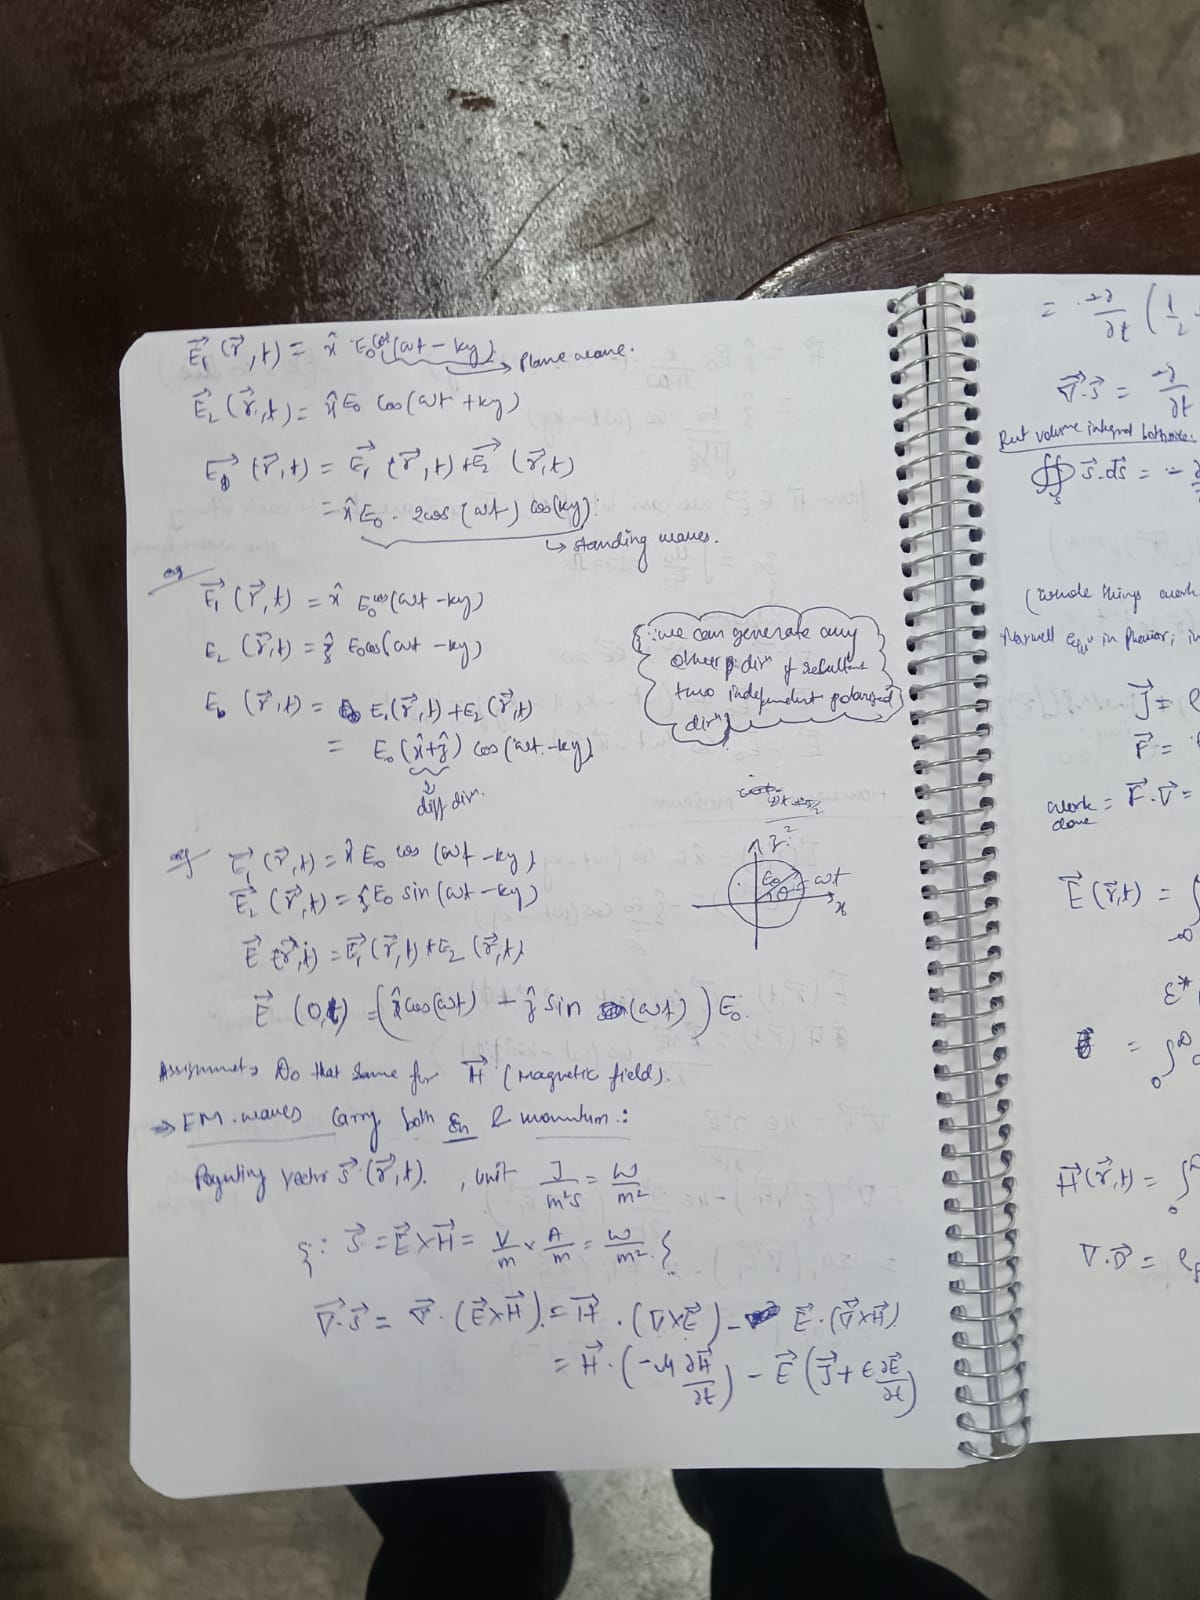 E⃗₁ (r⃗, t) = x̂ E₀ cos(ωt − ky) → Plane wave.
E⃗₂ (r⃗, t) = x̂ E₀ cos(ωt + ky)
E⃗ (r⃗, t) = E⃗₁ (r⃗, t) + E⃗₂ (r⃗, t)
= x̂ E₀ · 2cos(ωt) cos(ky).
↳ standing waves.
eg
E⃗₁ (r⃗, t) = x̂ E₀ cos(ωt − ky)
E₂ (r⃗, t) = ẑ E₀ cos(ωt − ky)
E (r⃗, t) = E₁(r⃗, t) + E₂(r⃗, t)
= E₀ (x̂ + ẑ) cos(ωt − ky)
2
diff dirⁿ.
{∵ we can generate any
other dirⁿ of
two independent polarized
dirⁿ}
eg E⃗₁ (r⃗, t) = x̂ E₀ cos (ωt − ky)
E⃗₂ (r⃗, t) = ẑ E₀ sin (ωt − ky)
E⃗ (r⃗, t) = E⃗₁ (r⃗, t) + E₂ (r⃗, t)
E⃗ (0, t) = (x̂ cos(ωt) + ẑ sin (ωt)) E₀.
z
E₀
θ = ωt
x
Assignment → Do that same for H⃗ (Magnetic field).
→ EM waves carry both En & momentum :
Poynting vector S⃗ (r⃗, t). , unit J/m²s = W/m²
{∵ S⃗ = E⃗ × H⃗ = V/m × A/m = W/m².}
∇⃗·S⃗ = ∇⃗ · (E⃗ × H⃗) = H⃗ · (∇ × E⃗) − E⃗ · (∇⃗ × H⃗)
= H⃗ · (−μ ∂H⃗/∂t) − E⃗ (J⃗ + ε ∂E⃗/∂t)
= −∂/∂t (1/2
∇⃗·S⃗ = −∂/∂t
Put volume integral bothside.
∯ₛ S⃗·dS⃗ = −
(whole things work
Maxwell Eqⁿ in Phasor; in
J⃗ =
F⃗ =
work done = F⃗ · V⃗ =
E⃗ (r⃗, t) = ∫
E*
= ∫₀^∞
H⃗ (r⃗, t) = ∫
∇·D⃗ = ρ